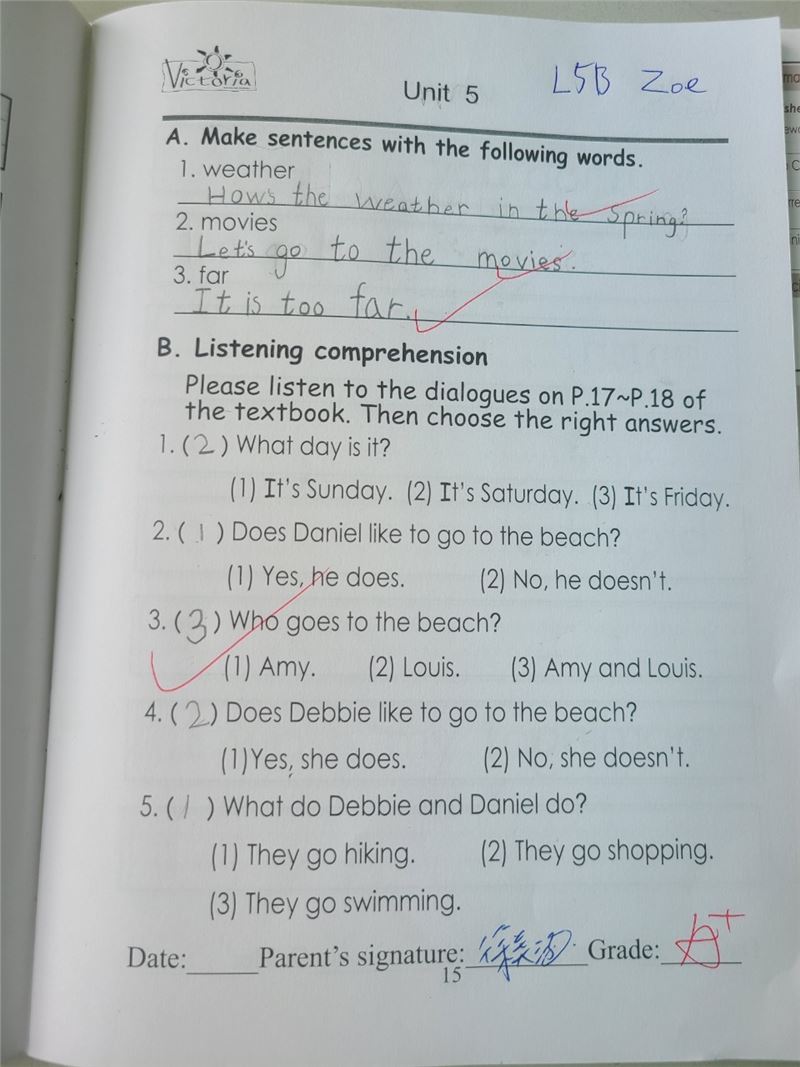 Victoria
Unit 5 L5B Zoe
A. Make sentences with the following words.
1. weather
How's the weather in the spring?
2. movies
Let's go to the movies.
3. far
It is too far.
B. Listening comprehension
Please listen to the dialogues on P.17~P.18 of
the textbook. Then choose the right answers.
1. (2) What day is it?
(1) It's Sunday. (2) It's Saturday. (3) It's Friday.
2. (1) Does Daniel like to go to the beach?
(1) Yes, he does. (2) No, he doesn't.
3. (3) Who goes to the beach?
(1) Amy. (2) Louis. (3) Amy and Louis.
4. (2) Does Debbie like to go to the beach?
(1)Yes, she does. (2) No, she doesn't.
5. (1) What do Debbie and Daniel do?
(1) They go hiking. (2) They go shopping.
(3) They go swimming.
Date: Parent's signature: Grade: A+
15